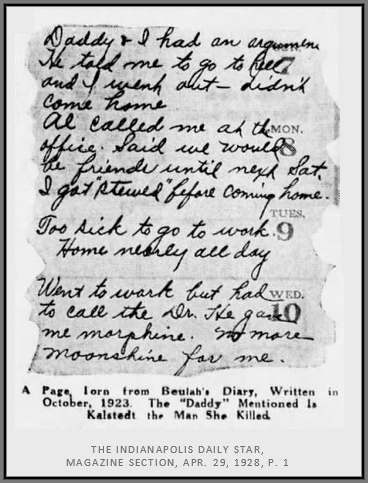 Daddy & I had an argumen
He told me to go to hell 7
and I went out – didn't
come home
Al called me at th MON.
office. Said we would 8
be friends until next Sat.
I got "stewed" before coming home.
TUES.
Too sick to go to work. 9
Home nearly all day
Went to work but had WED.
to call the Dr. He gave 10
me morphine. No more
moonshine for me.
A Page Torn from Beulah's Diary, Written in
October, 1923. The "Daddy" Mentioned Is
Kalstedt the Man She Killed.
THE INDIANAPOLIS DAILY STAR,
MAGAZINE SECTION, APR. 29, 1928, P. 1